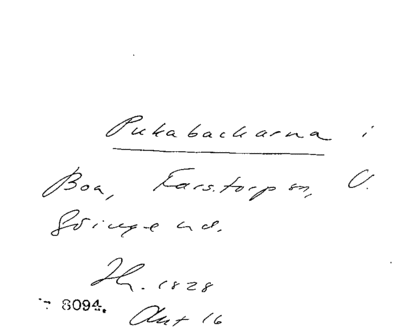 Pukabackarna i
Boa, Farstorp sn, V.
Göinge hd.
Th. 1828
8094.
Ant 16